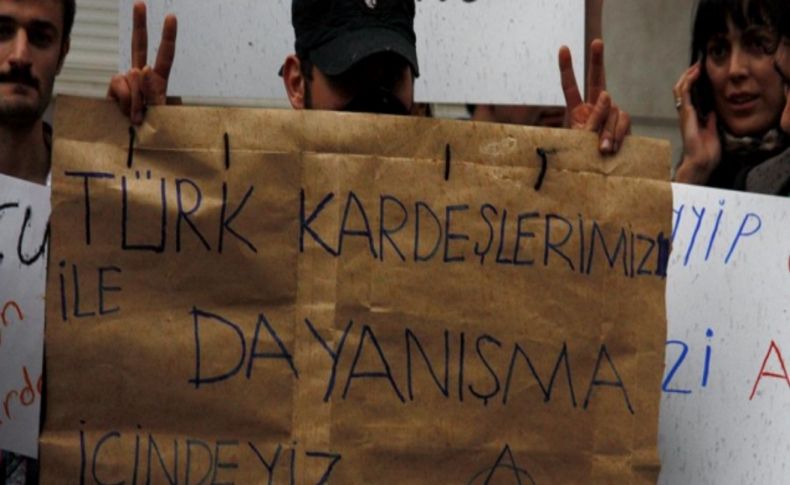 TÜRK KARDEŞLERİMİZ
İLE
DAYANIŞMA
İÇİNDEYİZ
YYİP
Zİ A